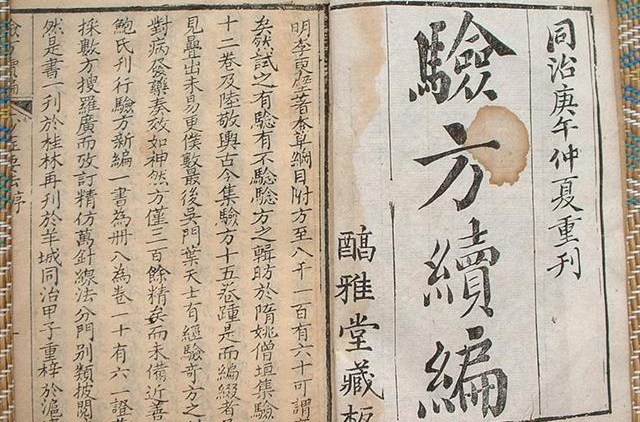 同治庚午仲夏重刊
驗方續編
醕雅堂藏板
明李東壁著本草綱目附方至八千一百有六十可謂
矣然試之有驗有不驗驗方之輯昉於隋姚僧垣集驗
十二卷及陸敬輿古今集驗方十五卷踵是而編綴者
見疊出未易更僕數最後吳門葉天士有經驗奇方之
對病發藥奏效如神然方僅三百餘精矣而未備近善
鮑氏刊行驗方新編一書為冊八為卷一十有六證
採數方搜羅廣而攷訂精仿萬針線法分門別類披閱
然是書一刊於桂林再刊於羊城同治甲子重梓於滬